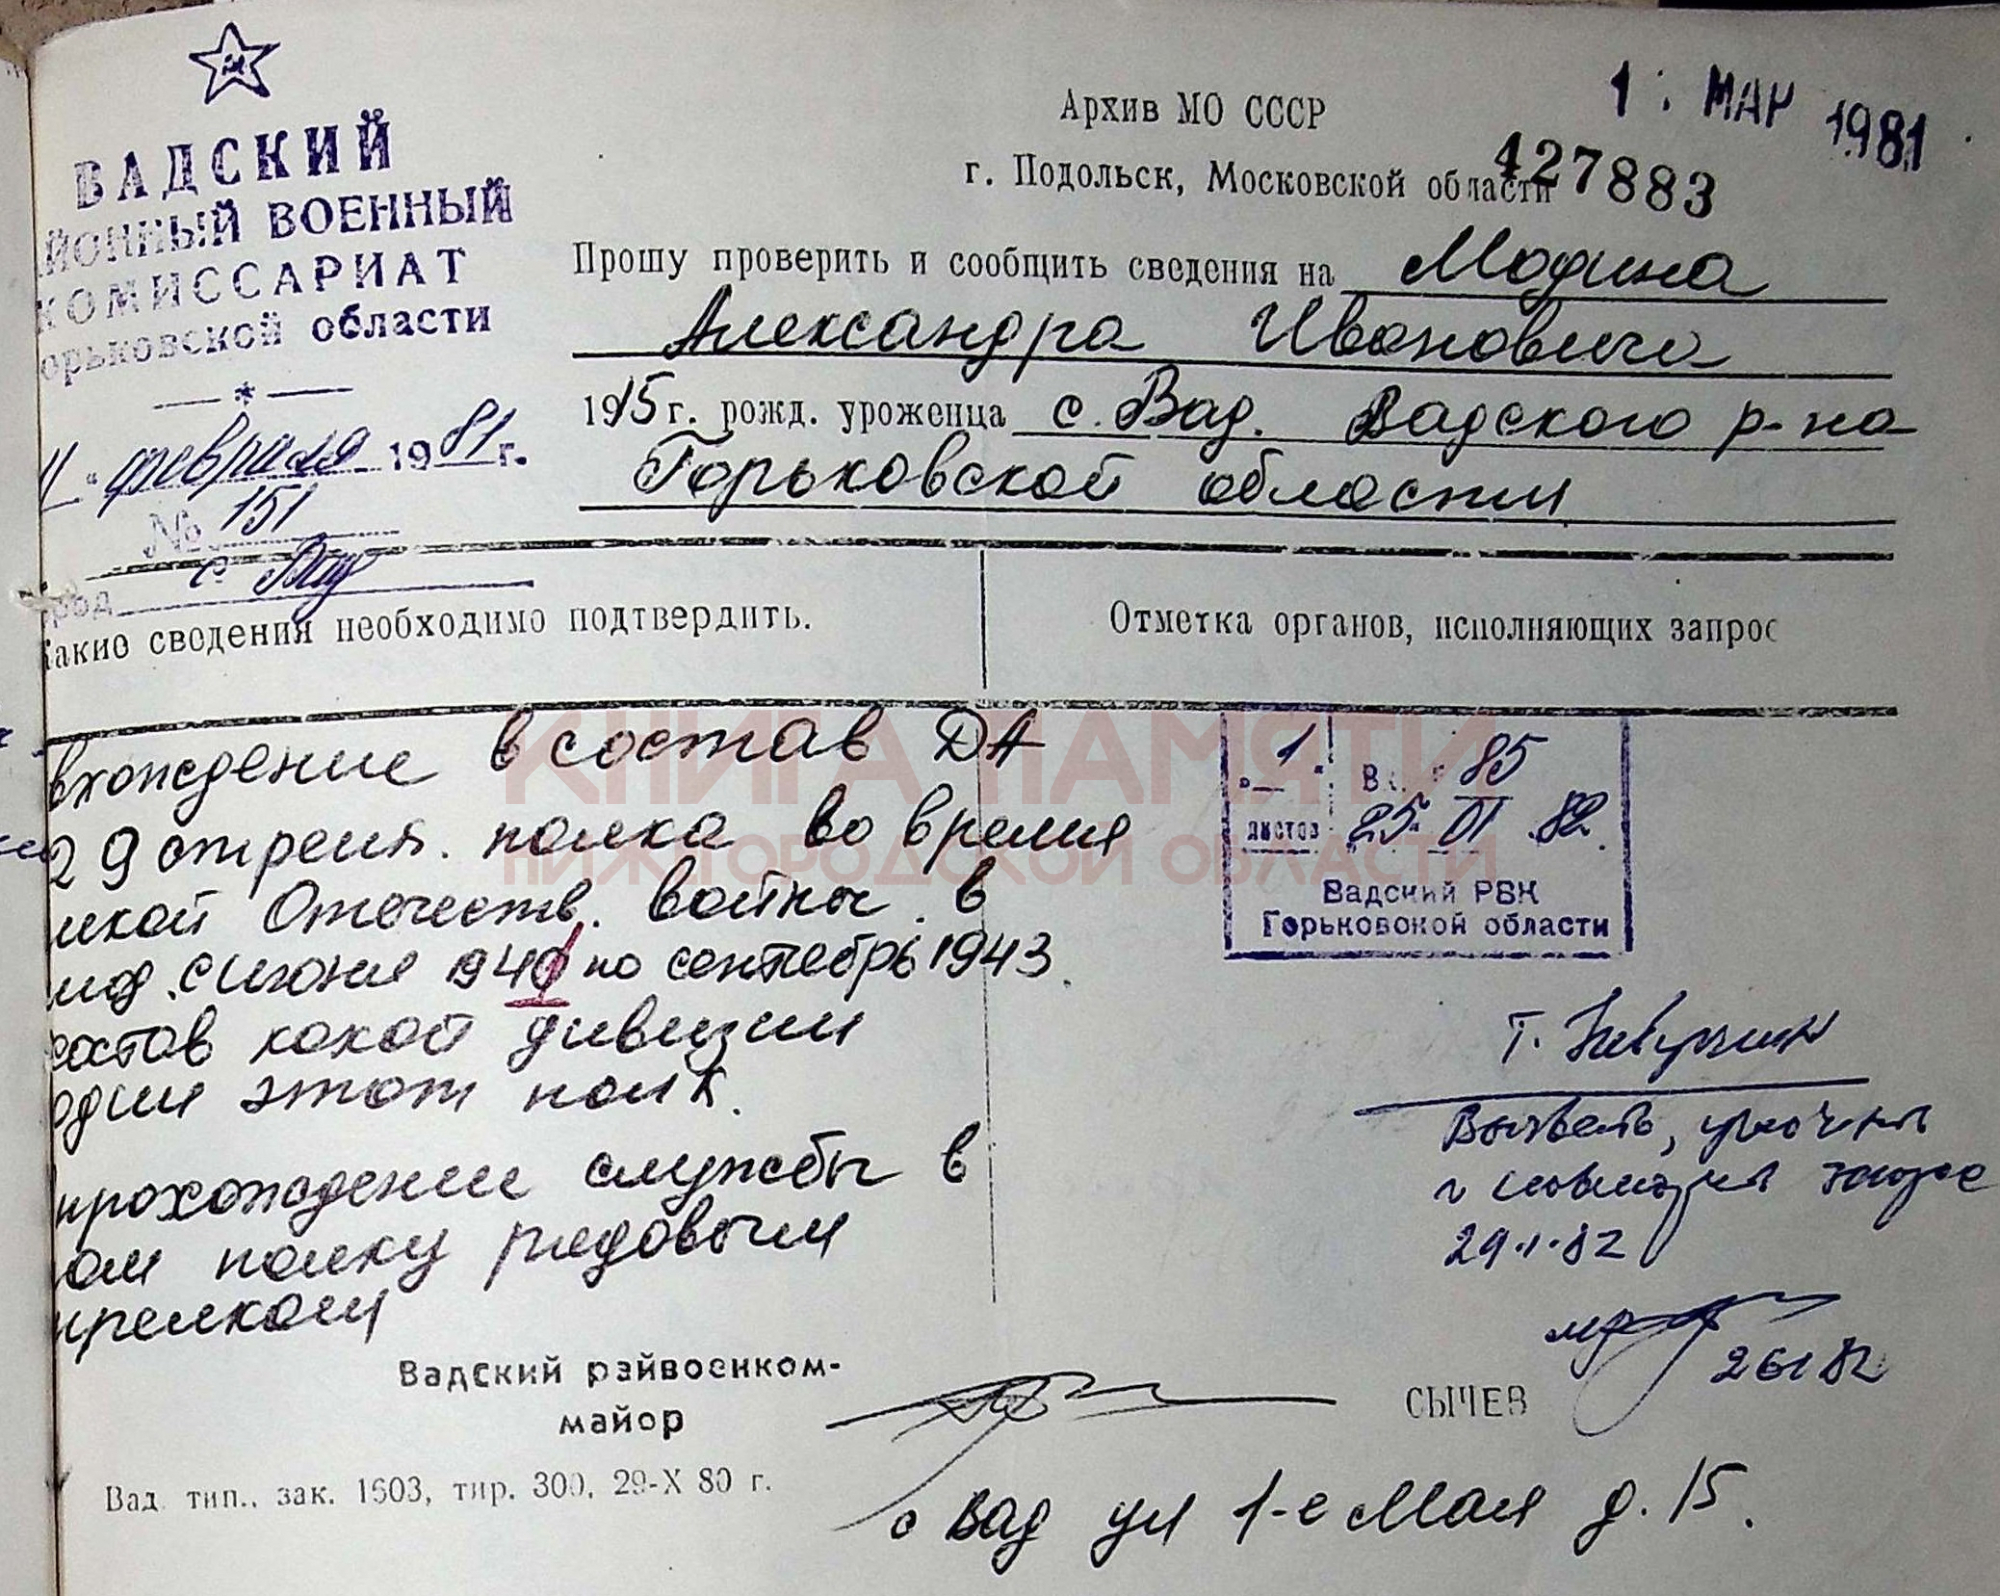 ВАДСКИЙ
ЙОННЫЙ ВОЕННЫЙ
КОМИССАРИАТ
орьковской области
11 " февраля 1981 г.
№ 151
с Вад
род
Архив МО СССР
г. Подольск, Московской области
1 . МАР 1981
427883
Прошу проверить и сообщить сведения на Модина
Александра Ивановича
1915 г. рожд. уроженца с. Вад. Вадского р-на
Горьковской области
Какие сведения необходимо подтвердить.
Отметка органов, исполняющих запрос
вхождение в состав ДА
29 стрелк. полка во время
икой Отечеств. войны в
иод с июня 1941 по сентябрь 1943.
состав какой дивизии
одил этот полк.
прохождении службы в
ом полку рядовым
трелком
"1" Вх. 85
листов 25 01 82.
Вадский РВК
Горьковской области
Т.
Вызвать, уточнить
и
29.1.82
26 1 82
Вадский райвоенком-
майор
СЫЧЕВ
Вад. тип., зак. 1603, тир. 300, 29-X 80 г.
с Вад ул 1-е Мая д. 15.
КНИГА ПАМЯТИ
НИЖЕГОРОДСКОЙ ОБЛАСТИ